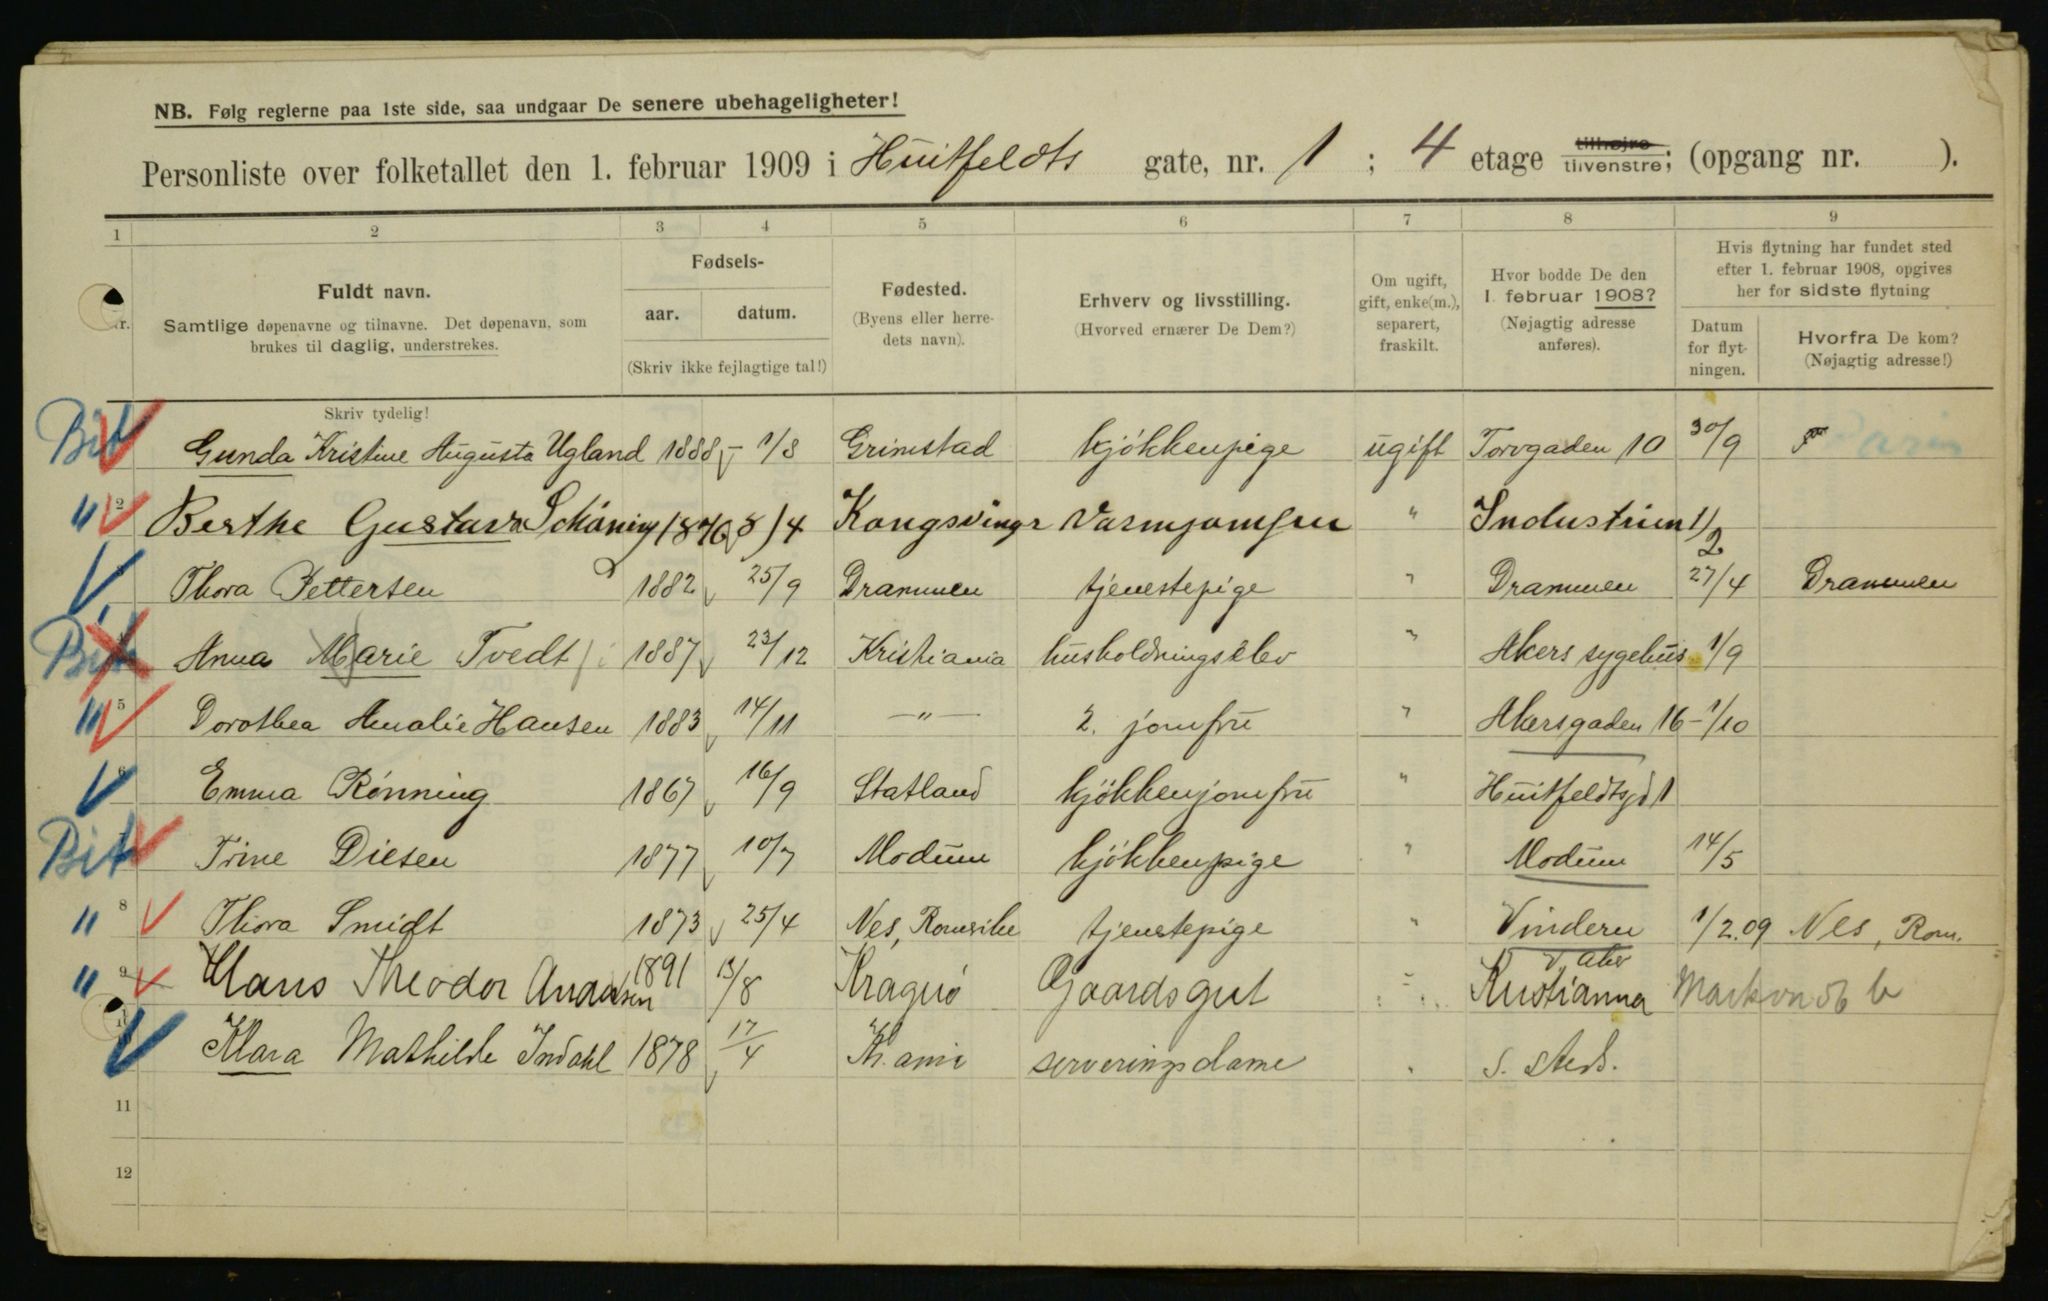 NB. Følg reglerne paa 1ste side, saa undgaar De senere ubehageligheter!
Personliste over folketallet den 1. februar 1909 i Huitfeldts gate, nr. 1 ; 4 etage tilhøjre tilvenstre; (opgang nr. ).
1 2 3 4 5 6 7 8 9
Nr. Fuldt navn. Samtlige døpenavne og tilnavne. Det døpenavn, som brukes til daglig, understrekes.
Fødsels- aar. datum. (Skriv ikke fejlagtige tal!)
Fødested. (Byens eller herredets navn).
Erhverv og livsstilling. (Hvorved ernærer De Dem?)
Om ugift, gift, enke(m.), separert, fraskilt.
Hvor bodde De den 1. februar 1908? (Nøjagtig adresse anføres).
Hvis flytning har fundet sted efter 1. februar 1908, opgives her for sidste flytning
Datum for flytningen. Hvorfra De kom? (Nøjagtig adresse!)
Skriv tydelig!
Bit Gunda Kristine Augusta Ugland 1888 1/8 Grimstad kjøkkenpige ugift Torvgaden 10 30/9
" 2 Berthe Gustava Schöning 1876 8/4 Kongsvinger Varmjomfru " Industrien 1/2
3 Thora Pettersen 1882 25/9 Drammen tjenestepige " Drammen 27/4 Drammen
Bit 4 Anna Marie Tvedt 1887 23/12 Kristiania husholdningselev " Akers sygehus 1/9
" 5 Dorothea Amalie Hansen 1883 14/11 —"— 2. jomfru " Akersgaden 16 - 1/10
6 Emma Rönning 1867 16/9 Statland kjøkkenjomfru " Huitfeldtsgd 1
Bit 7 Trine Diesen 1877 10/7 Modum kjøkkenpige " Modum 14/5
" 8 Thora Smidt 1873 25/4 Nes, Romerike tjenestepige " Vindern v. Aker 1/2.09 Nes, Rom.
" 9 Hans Theodor Andersen 1891 13/8 Kragerö Gaardsgut " Kristiania Markvn 56 b
10 Klara Mathilde Indahl 1878 17/4 Kr.ania serveringsdame " s. sted.
11
12